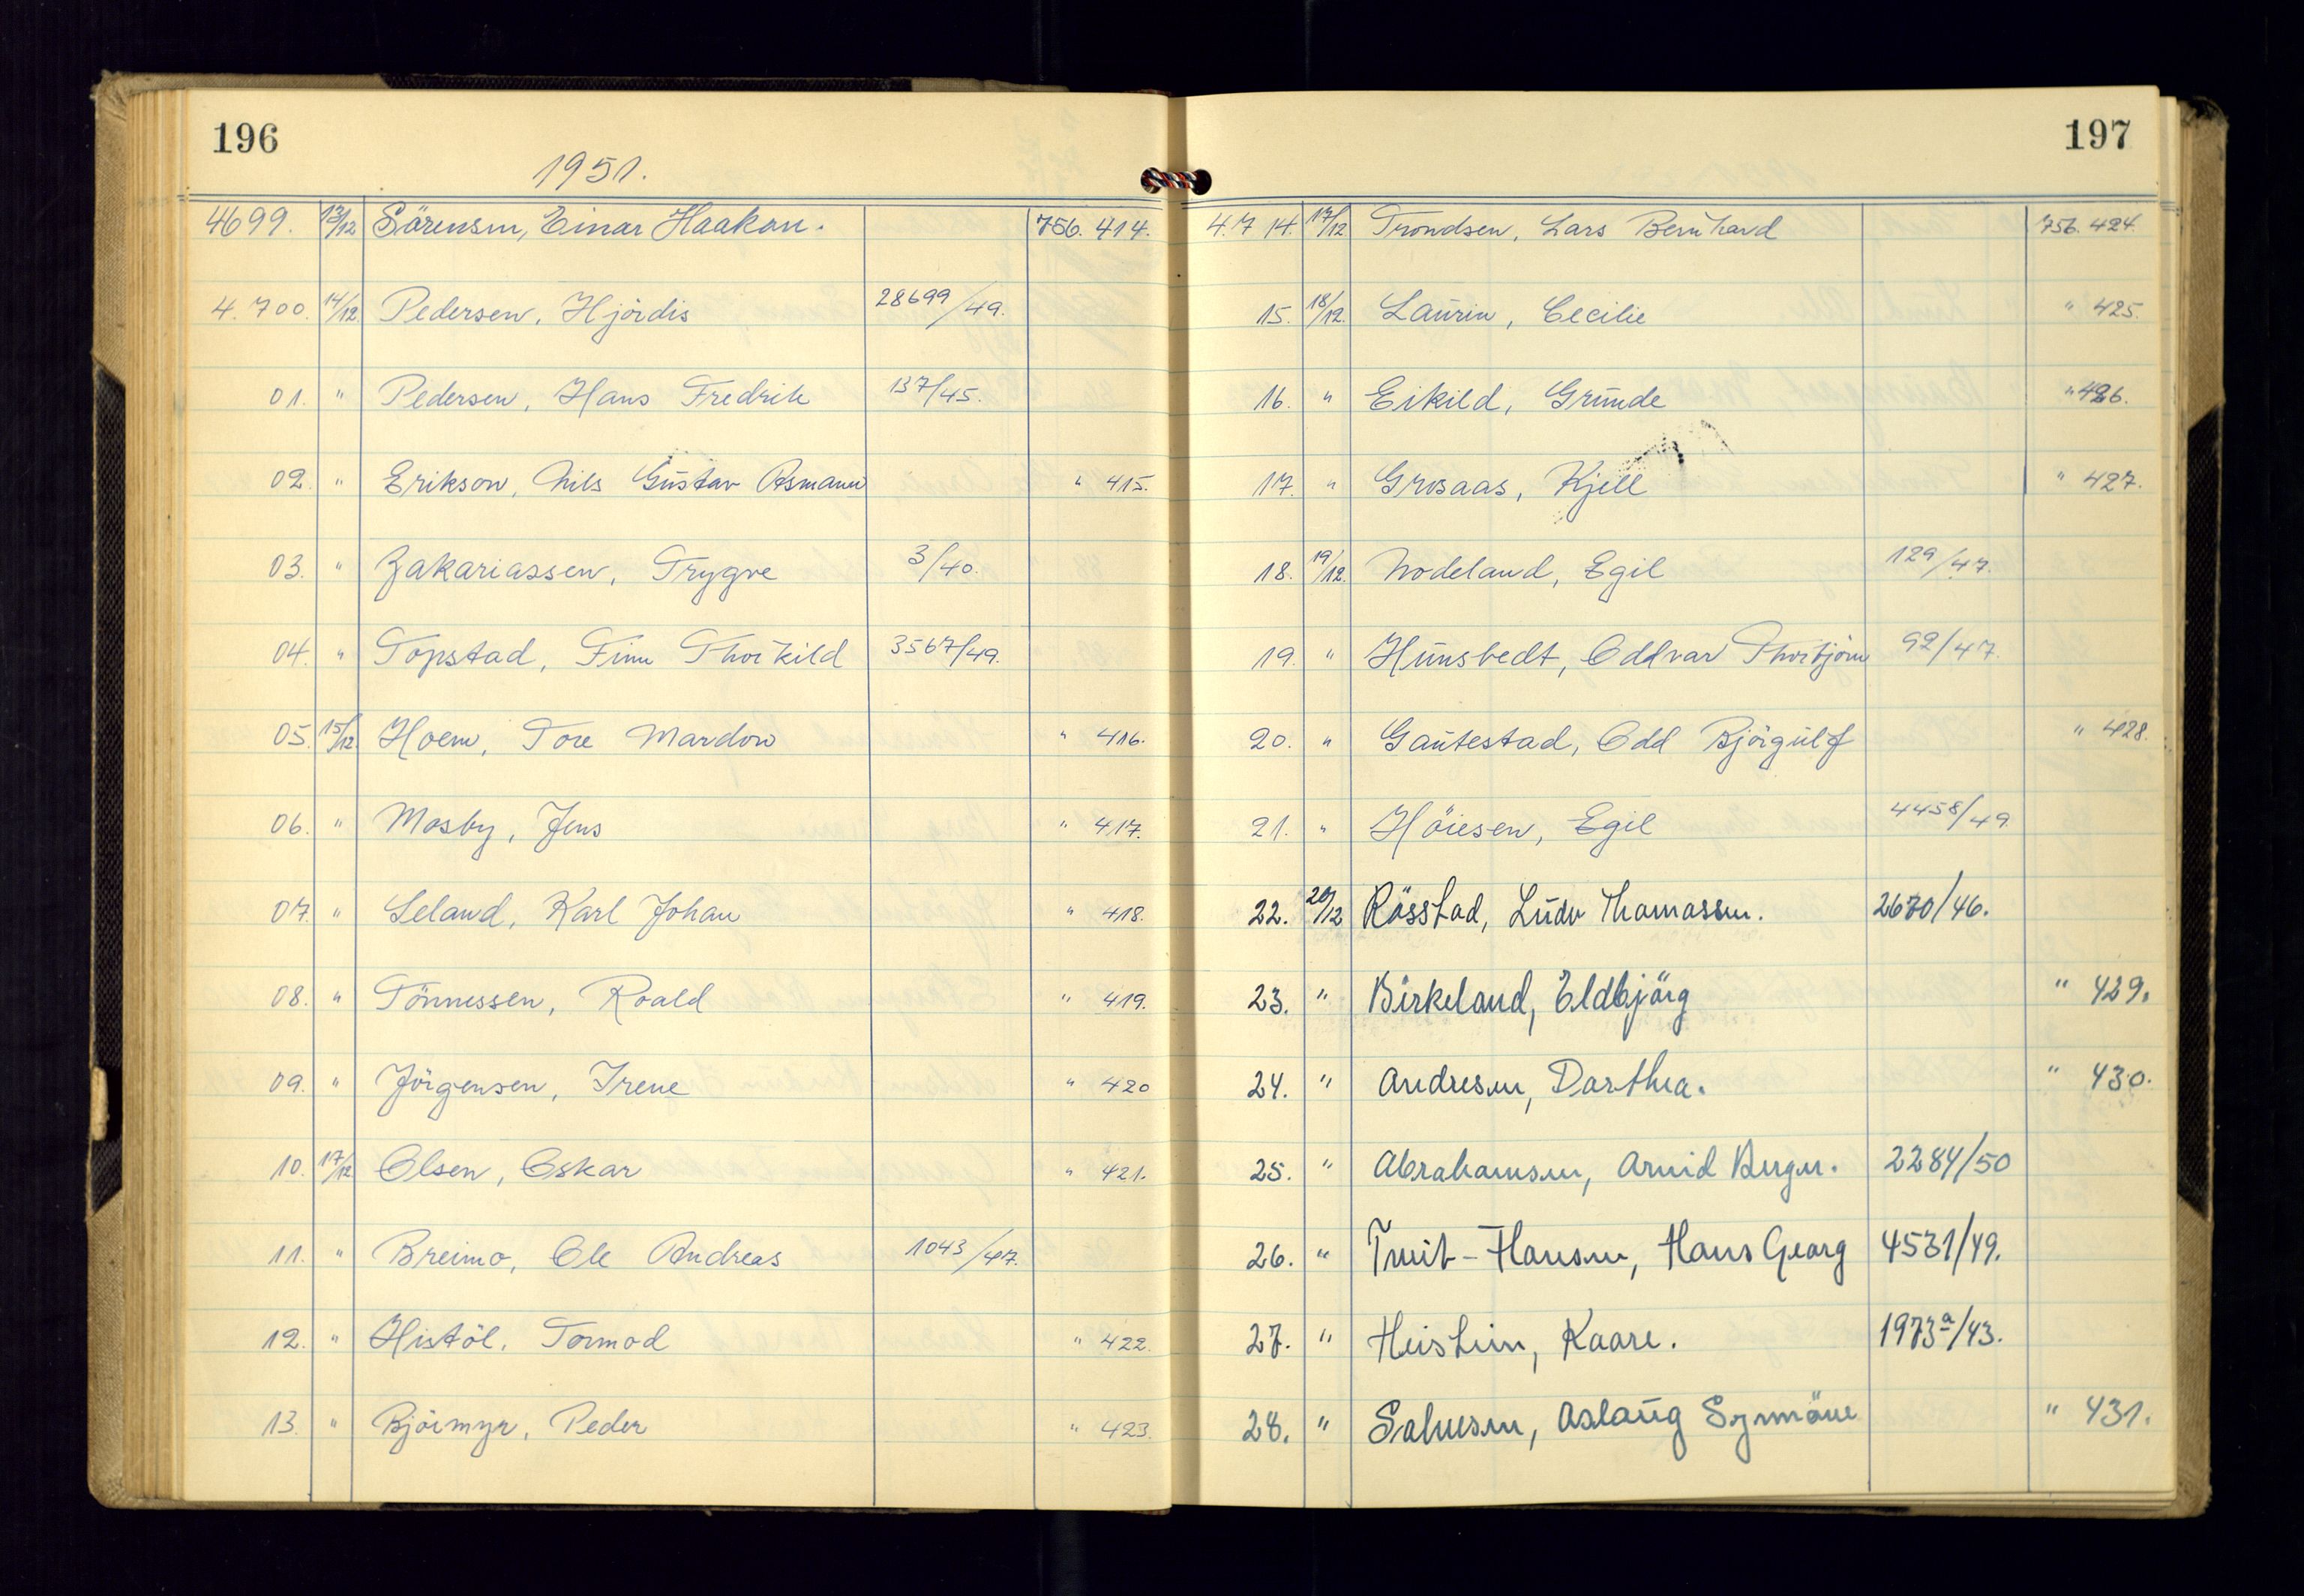 196
1951.
4699. 13/12 Sörensen, Einar Haakon. 756.414.
4.700. 14/12 Pedersen, Hjördis 28699/49.
01. " Pedersen, Hans Fredrik 137/45.
02. " Erikson, Nils Gustav Asmann " 415.
03. " Zakariassen, Trygve 3/40.
04. " Topstad, Finn Thorkild 3567/49.
05. 15/12 Hoem, Tore Mardow " 416.
06. " Mosby, Jens " 417.
07. " Leland, Karl Johan " 418.
08. " Tönnessen, Roald " 419.
09. " Jörgensen, Irene " 420
10. 17/12 Olsen, Oskar " 421.
11. " Breimo, Ole Andreas 1043/47.
12. " Histöl, Tormod " 422.
13. " Björmyr, Peder " 423.
197
4.714. 17/12 Trondsen, Lars Bernhard 756.424.
15. 18/12. Laurin, Cecilie " 425.
16. " Eikild, Grunde " 426.
17. " Grosaas, Kjell " 427.
18. 19/12. Nodeland, Egil 129/47.
19. " Hunsbedt, Oddvar Thorbjörn 92/47.
20. " Gautestad, Odd Björgulf " 428.
21. " Höiesen, Egil 4458/49
22. 20/12 Rösstad, Ludv Thomassen. 2670/46.
23. " Birkeland, Eldbjörg " 429.
24. " Andresen, Dorthea. " 430.
25. " Abrahamsen, Arnid Berger. 2284/50
26. " -Hansen, Hans Georg 4531/49.
27. " Heistein, Kaare. 1973a/43.
28. " Salvesen, Aslaug Synnöve " 431.